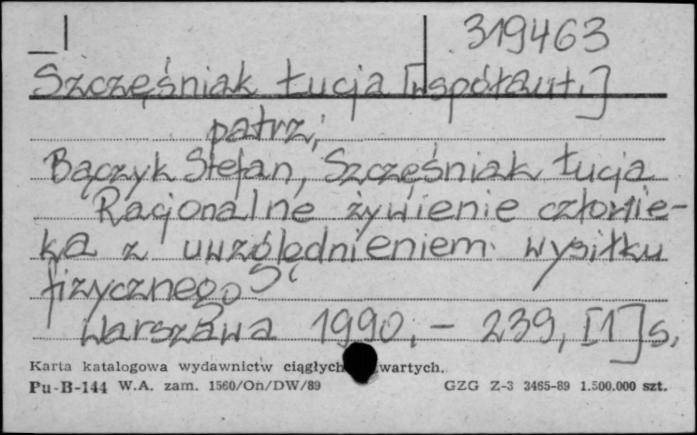 319463
Szczęśniak Łucja [współaut.]
patrz:
Bączyk Stefan, Szczęśniak Łucja
Racjonalne żywienie człowie-
ka z uwzględnieniem wysiłku
fizycznego
Warszawa 1990. - 239, [1] s.
Karta katalogowa wydawnictw ciągłych wartych.
Pu-B-144 W.A. zam. 1560/On/DW/89 GZG Z-3 3465-89 1.500.000 szt.